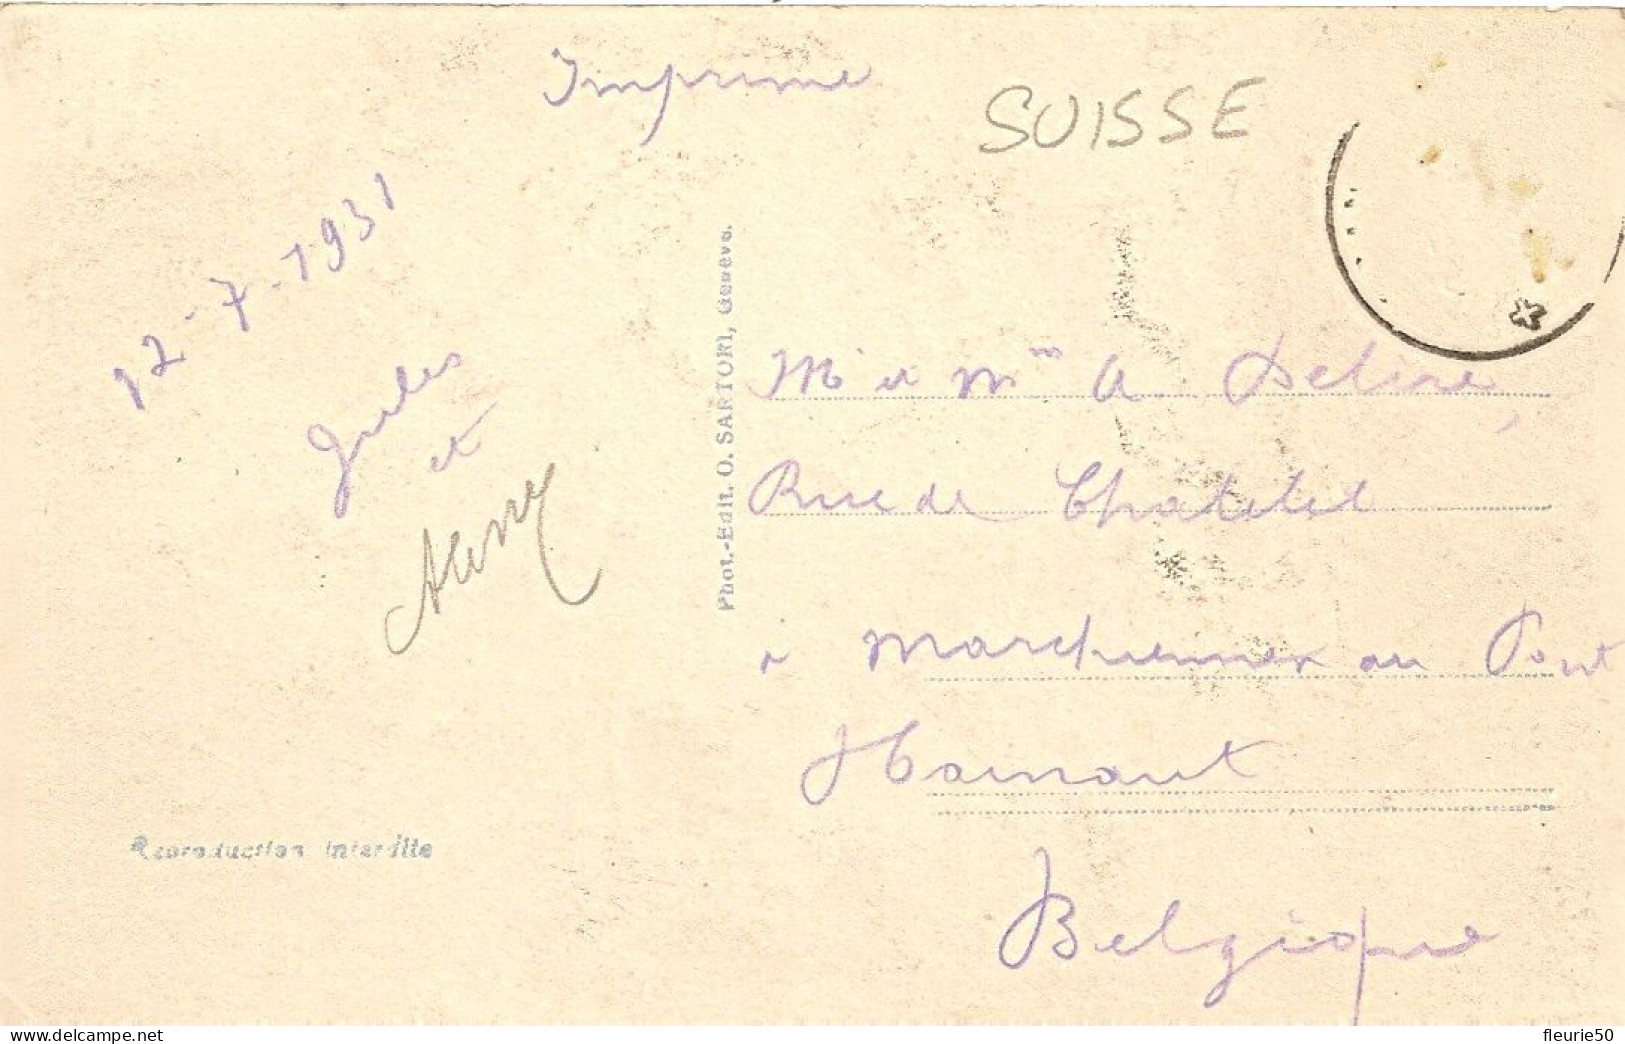 Imprime
SUISSE
12-7-1931
Jules
et
Phot.-Edit. O. SARTORI, Genève.
Mr et Mme A Deline,
Rue de Chatelet
à Marchiennes au Pont
Hainaut
Belgique
Reproduction interdite
www.delcampe.net
fleurie50